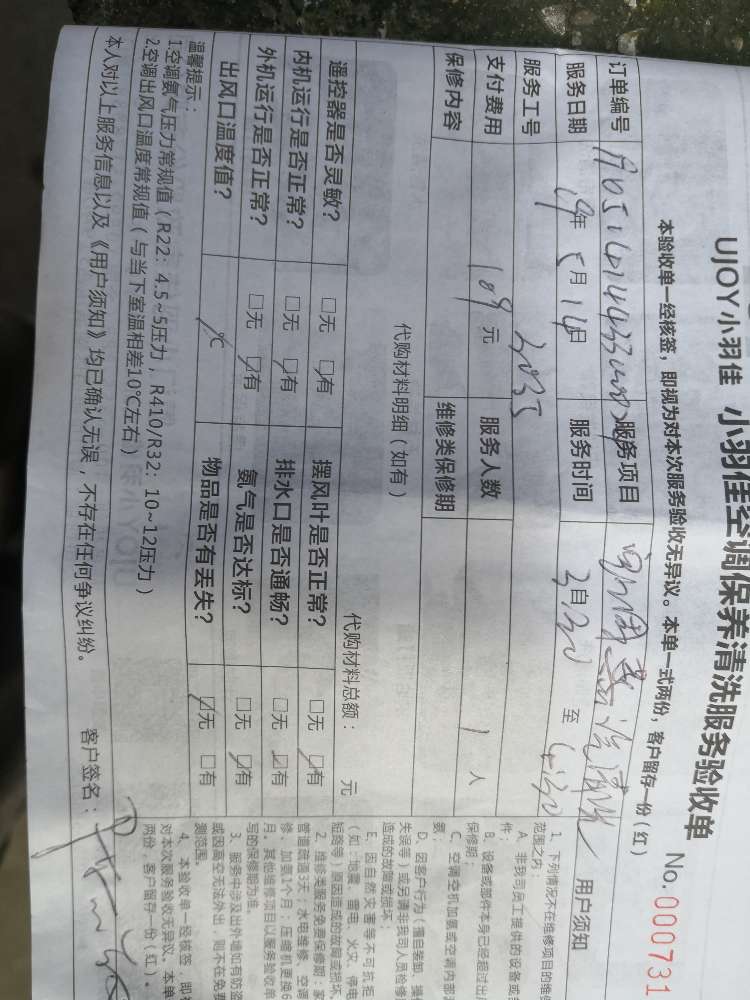 UJOY小羽佳 小羽佳空调保养清洗服务验收单
No.000731
本验收单一经核签，即视为对本次服务验收无异议。本单一式两份，客户留存一份（红）
订单编号 服务项目
服务日期 19年5月16日 服务时间 自3:30至4:30
服务工号 3035
支付费用 109元 服务人数 1人
保修内容 维修类保修期
代购材料明细（如有）
代购材料总额： 元
遥控器是否灵敏？ □无 ☑有 摆风叶是否正常？ □无 ☑有
内机运行是否正常？ □无 ☑有 排水口是否通畅？ □无 ☑有
外机运行是否正常？ □无 ☑有 氨气是否达标？ □无 ☑有
出风口温度值？ ℃ 物品是否有丢失？ ☑无 □有
温馨提示：
1.空调氨气压力常规值（R22：4.5~5压力，R410/R32：10~12压力）
2.空调出风口温度常规值（与当下室温相差10℃左右）
本人对以上服务信息以及《用户须知》均已确认无误，不存在任何争议纠纷。
客户签名：
用户须知
1、下列情况不在维修项目的维修
范围之内：
A、非我司员工提供的设备或
件；
B、设备或部件本身已经超过出
保修期；
C、空调空机加氨或空调内部
D、因客户行为（擅自装卸、操
失误等）或另请非我司人员检修
造成的故障或损坏；
E、因自然灾害等不可抗拒
（如：地震、雷电、火灾、停电
短路等）原因造成的故障或损坏。
2、维修类服务免费保修期：
管道疏通3天；水电维修、空调
修、加氨1个月；压缩机更换6
月。其他维修项目以服务验收单
写的保修期为准。
3、服务中涉及出外墙如有防盗
或因高空无法外出，则不在免费
测范围。
4、本验收单一经核签，即视
对本次服务验收无异议。本单
两份，客户留存一份（红）。